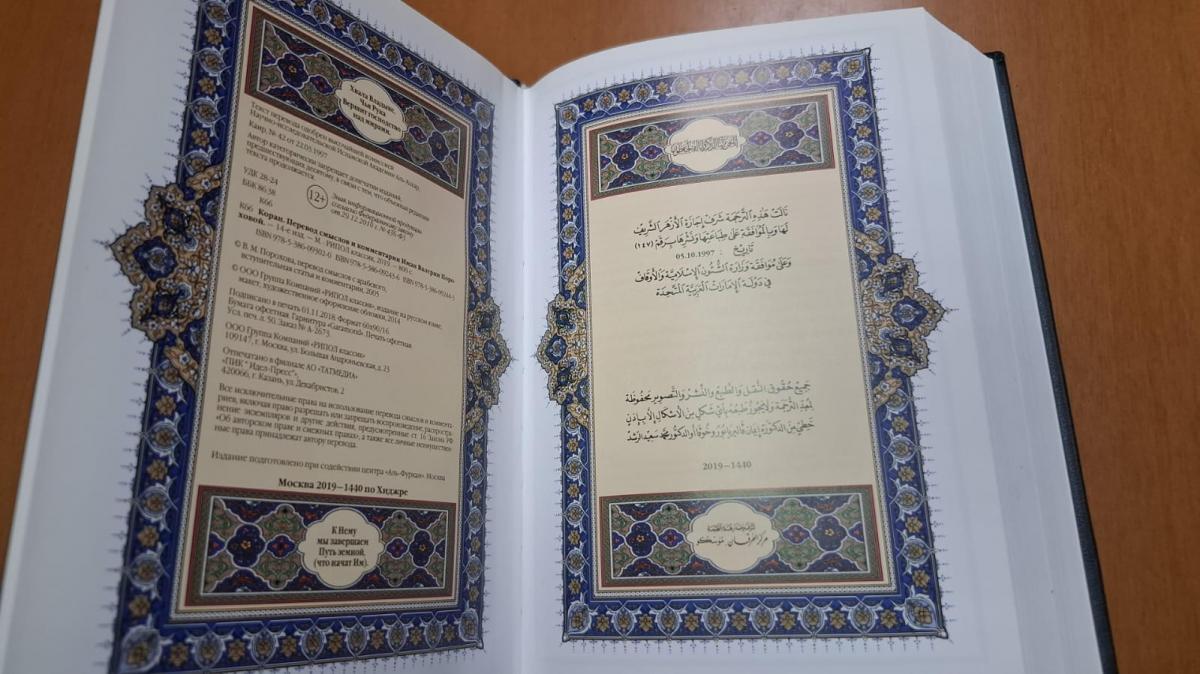 Хвала Владыке,
Чья Рука
Вершит господство
над мирами.
Текст перевода одобрен высочайшей комиссией
Научно-исследовательской Исламской Академии Аль-Азхар,
Каир, № 42 от 22.03.1997
Автор категорически запрещает допечатки изданий,
предшествующих десятому, в связи с тем, что объемная редакция
текста продолжается.
УДК 28-24
ББК 86.38
К66
12+
Знак информационной продукции
согласно Федеральному закону
от 29.12.2010 г. № 436-ФЗ
К66 Коран. Перевод смыслов и комментарии Иман Валерии Поро-
ховой. — 14-е изд. — М. : РИПОЛ классик, 2019. — 800 с.
ISBN 978-5-386-09302-0 ISBN 978-5-386-09243-6 ISBN 978-5-386-09244-3
© В. М. Порохова, перевод смыслов с арабского,
вступительная статья и комментарии, 2005
© ООО Группа Компаний «РИПОЛ классик», издание на русском языке,
макет, художественное оформление обложки, 2014
Подписано в печать 01.11.2018. Формат 60х90/16
Бумага офсетная. Гарнитура «Garamond». Печать офсетная
Усл. печ. л. 50. Заказ № А-2673.
ООО Группа Компаний «РИПОЛ классик»
109147, г. Москва, ул. Большая Андроньевская, д. 23
Отпечатано в филиале АО «ТАТМЕДИА»
«ПИК "Идел-Пресс"»,
420066, г. Казань, ул. Декабристов, 2
Все исключительные права на использование перевода смыслов и коммента-
риев, включая право разрешать или запрещать воспроизведение, распростра-
нение экземпляров и другие действия, предусмотренные ст. 16 Закона РФ
«Об авторском праве и смежных правах», а также все личные неимуществен-
ные права принадлежат автору перевода.
Издание подготовлено при содействии центра «Аль-Фуркан». Москва
Москва 2019—1440 по Хиджре
К Нему
мы завершаем
Путь земной,
(что начат Им).
نالت هذه الترجمة شرف إجازة الأزهر الشريف
لها وبالموافقة على طباعتها ونشرها برقم (١٤٧)
تاريخ : 05.10.1997
وعلى موافقة وزارة الشئون الإسلامية والأوقاف
في دولة الإمارات العربية المتحدة
جميع حقوق النقل والطبع والنشر والتصوير محفوظة
لمعد الترجمة ولا يجوز طبعه بأي شكل من الأشكال إلا بإذن
خطي من الدكتورة إيمان فاليريا بوروخوفا أو الدكتور محمد سعيد الرشد
2019—1440
مركز الفرقان . موسكو